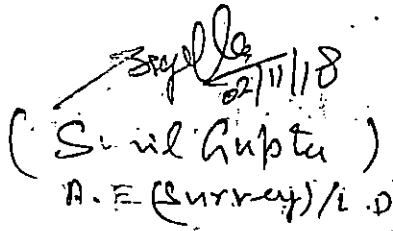 02/11/18
(Sunil Gupta)
A.E (Survey)/L.D